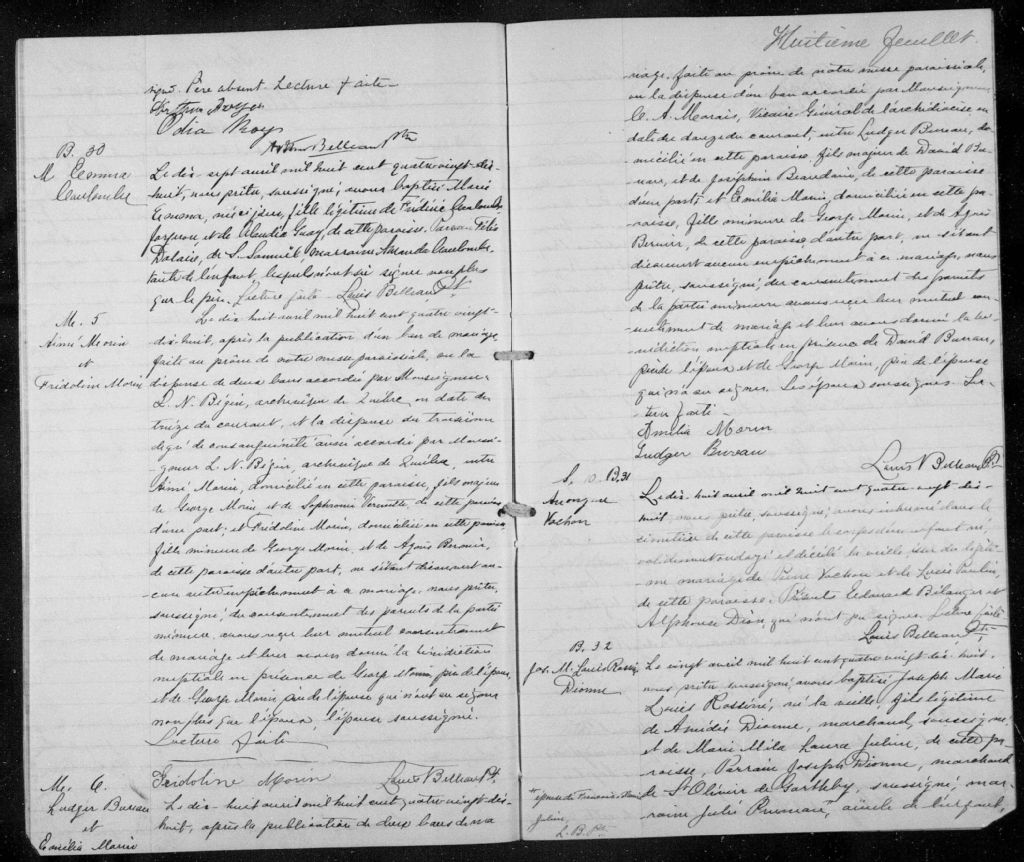 signé. Père absent. Lecture faite.
Odia Roy
Arthur Belleau Ptre
B. 30
M. Emma
Coulombe
Le dix-sept avril mil huit cent quatre vingt-dix-
huit, nous prêtre, soussigné, avons baptisé Marie
Emma, née ce jour, fille légitime de Frédéric Coulombe
forgeron et de Claudia Guay, de cette paroisse. Parrain Félix
Dalaire, de S. Samuël, marraine Amanda Coulombe
tante de l'enfant, lesquels n'ont su signer non plus
que le père. Lecture faite. Louis Belleau Ptre
M. 5
Aimé Morin
et
Fridoline Morin
Le dix-huit avril mil huit cent quatre vingt-
dix-huit, après la publication d'un ban de mariage
faite au prône de notre messe paroissiale, vu la
dispense de deux bans accordée par Monseigneur
L. N. Bégin, archevêque de Québec, en date du
treize du courant, et la dispense du troisième
degré de consanguinité aussi accordée par Monsei-
gneur L. N. Bégin, archevêque de Québec, entre
Aimé Morin, domicilié en cette paroisse, fils majeur
de George Morin et de Sophronie Vermette, de cette paroisse
d'une part, et Fridoline Morin, domiciliée en cette paroisse,
fille mineure de George Morin, et de Agnès Bernier,
de cette paroisse d'autre part, ne s'étant découvert au-
cun autre empêchement à ce mariage, nous prêtre,
soussigné, du consentement des parents de la partie
mineure, avons reçu leur mutuel consentement
de mariage et leur avons donné la bénédiction
nuptiale en présence de George Morin, père de l'époux,
et de George Morin père de l'épouse qui n'ont su signer
non plus que l'époux, l'épouse soussignée.
Lecture faite
Fridoline Morin Louis Belleau Pt.
M. 6.
Ludger Bureau
et
Emélia Morin
Le dix-huit avril mil huit cent quatre vingt-dix-
huit, après la publication de deux bans de ma
Huitième feuillet.
riage, faite au prône de notre messe paroissiale,
vu la dispense d'un ban accordée par Monseigneur
C. A. Marois, Vicaire Général de l'archidiocèse en
date du douze du courant, entre Ludger Bureau, do-
micilié en cette paroisse, fils majeur de David Bu-
reau, et de Joséphine Beaudoin, de cette paroisse
d'une part, et Emélia Morin, domiciliée en cette pa-
roisse, fille mineure de George Morin, et de Agnès
Bernier, de cette paroisse d'autre part, ne s'étant
découvert aucun empêchement à ce mariage, nous
prêtre, soussigné, du consentement des parents
de la partie mineure avons reçu leur mutuel con-
sentement de mariage et leur avons donné la bé-
nédiction nuptiale en présence de David Bureau,
père de l'époux et de George Morin, père de l'épouse
qui n'a su signer. Les époux soussignés. Lec-
ture faite.
Amelia Morin
Ludger Bureau
Louis N Belleau Pt
S. 10 B. 31
Anonyme
Vachon
Le dix-huit avril mil huit cent quatre vingt-dix-
huit, nous prêtre, soussigné, avons inhumé dans le
cimetière de cette paroisse le corps d'un enfant né,
validement ondoyé et décédé la veille, issu du légiti-
me mariage de Pierre Vachon et de Lucie Poulin,
de cette paroisse. Présents Edouard Bélanger et
Alphonse Dion, qui n'ont pu signer. Lecture faite
Louis Belleau Pt.
B. 32
Jos. M. Louis Rossini
Dionne
Le vingt avril mil huit cent quatre vingt-dix-huit,
nous prêtre soussigné, avons baptisé Joseph Marie
Louis Rossini, né la veille, fils légitime
de Amédée Dionne, marchand, soussigné,
et de Marie Mila Laura Julien, de cette pa-
roisse. Parrain Joseph Dionne, marchand
de St Olivier de Garthby, soussigné, mar-
raine Julie Primeau, aïeule de l'enfant,
Julien,
L. B. Pt.